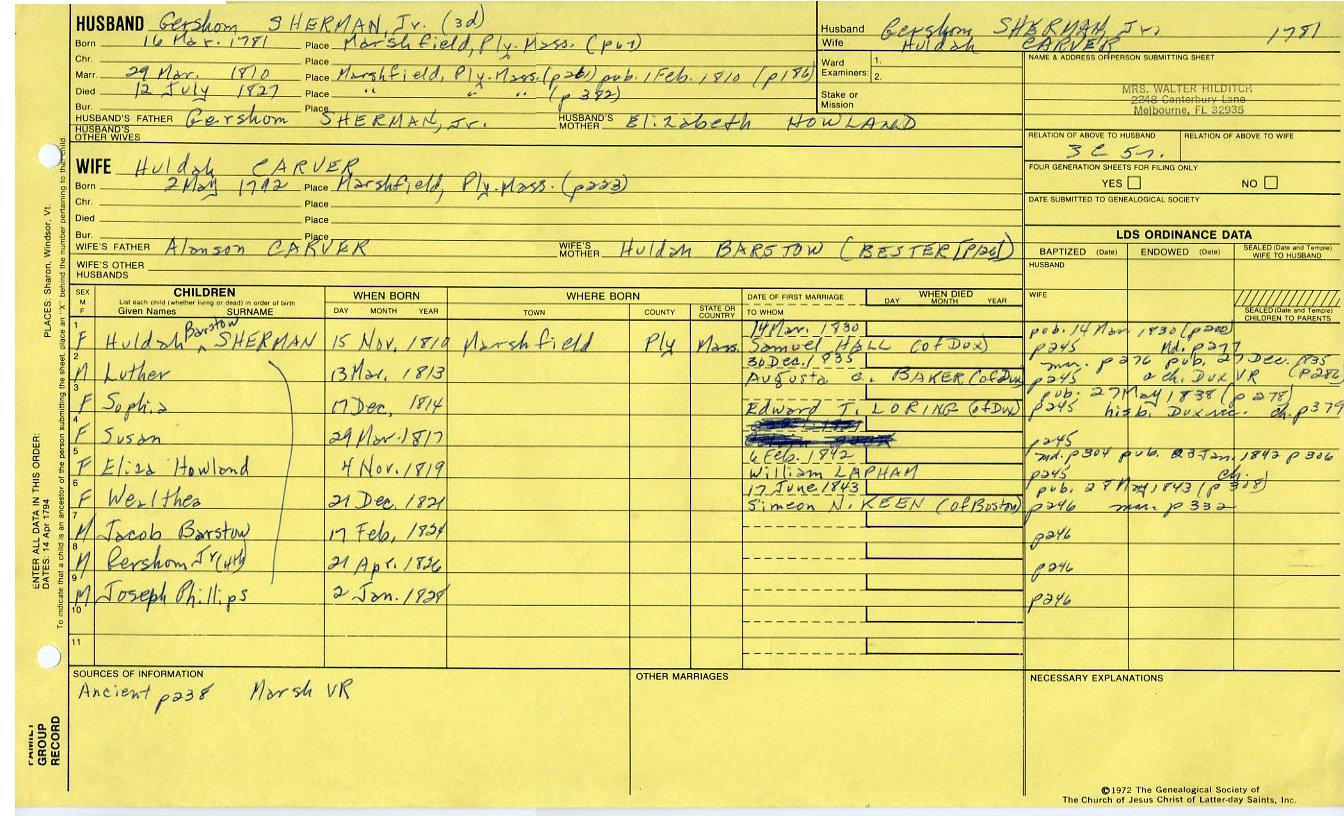 HUSBAND Gershom SHERMAN, Jr. (3d)
Born 16 Mar. 1781 Place Marshfield, Ply. Mass. (p67)
Chr. Place
Marr. 29 Mar. 1810 Place Marshfield, Ply. Mass. (p261) pub. 1 Feb. 1810 (p186)
Died 12 July 1827 Place " " " (p 382)
Bur. Place
HUSBAND'S FATHER Gershom SHERMAN, Jr. HUSBAND'S MOTHER Elizabeth HOWLAND
HUSBAND'S OTHER WIVES
Husband Gershom SHERMAN, Jr. 1781
Wife Huldah CARVER
Ward Examiners: 1.
2.
Stake or Mission
NAME & ADDRESS OF PERSON SUBMITTING SHEET
MRS. WALTER HILDITCH
2248 Canterbury Lane
Melbourne, FL 32935
RELATION OF ABOVE TO HUSBAND RELATION OF ABOVE TO WIFE
3 C 5r.
FOUR GENERATION SHEETS FOR FILING ONLY
YES NO
DATE SUBMITTED TO GENEALOGICAL SOCIETY
WIFE Huldah CARVER
Born 2 May 1792 Place Marshfield, Ply. Mass. (p223)
Chr. Place
Died Place
Bur. Place
WIFE'S FATHER Alanson CARVER WIFE'S MOTHER Huldah BARSTOW (BESTER [p126])
WIFE'S OTHER HUSBANDS
LDS ORDINANCE DATA
BAPTIZED (Date) ENDOWED (Date) SEALED (Date and Temple) WIFE TO HUSBAND
HUSBAND
WIFE
SEALED (Date and Temple) CHILDREN TO PARENTS
SEX M F CHILDREN List each child (whether living or dead) in order of birth Given Names SURNAME
WHEN BORN DAY MONTH YEAR
WHERE BORN TOWN COUNTY STATE OR COUNTRY
DATE OF FIRST MARRIAGE TO WHOM
WHEN DIED DAY MONTH YEAR
1 14 Mar. 1830 pub. 14 Mar. 1830 (p200)
F Huldah Barstow SHERMAN 15 Nov. 1810 Marshfield Ply Mass. Samuel HALL (of Dux) p245 Md. p277
2 30 Dec. 1835 mar. p 276 pub. 27 Dec. 1835
M Luther 13 Mar. 1813 Augusta a. BAKER (of Dux) p245 a ch. Dux VR (p282
3 pub. 27 May 1838 (p 278)
F Sophia 17 Dec. 1814 Edward T. LORING (of Dux) p245 his b. Dux rec. ch. p379
4
F Susan 29 Mar. 1817 p245
5 6 Feb. 1842 md. p304 pub. 23 Jan. 1842 p 306
F Eliza Howland 4 Nov. 1819 William LAPHAM p245 ch.
6 17 June 1843 pub. 28 May 1843 (p 318)
F Wealthea 21 Dec. 1821 Simeon N. KEEN (of Boston) p246 mar. p 332
7
M Jacob Barstow 17 Feb. 1824 p246
8
M Gershom Jr (4th) 21 Apr. 1826 p246
9
M Joseph Phillips 2 Jan. 1828 p246
10
11
SOURCES OF INFORMATION
Ancient p238 Marsh VR
OTHER MARRIAGES
NECESSARY EXPLANATIONS
©1972 The Genealogical Society of
The Church of Jesus Christ of Latter-day Saints, Inc.
PLACES: Sharon, Windsor, Vt.
ENTER ALL DATA IN THIS ORDER:
DATES: 14 Apr 1794
To indicate that a child is an ancestor of the person submitting the sheet, place an "X" behind the number pertaining to that child.
FAMILY GROUP RECORD